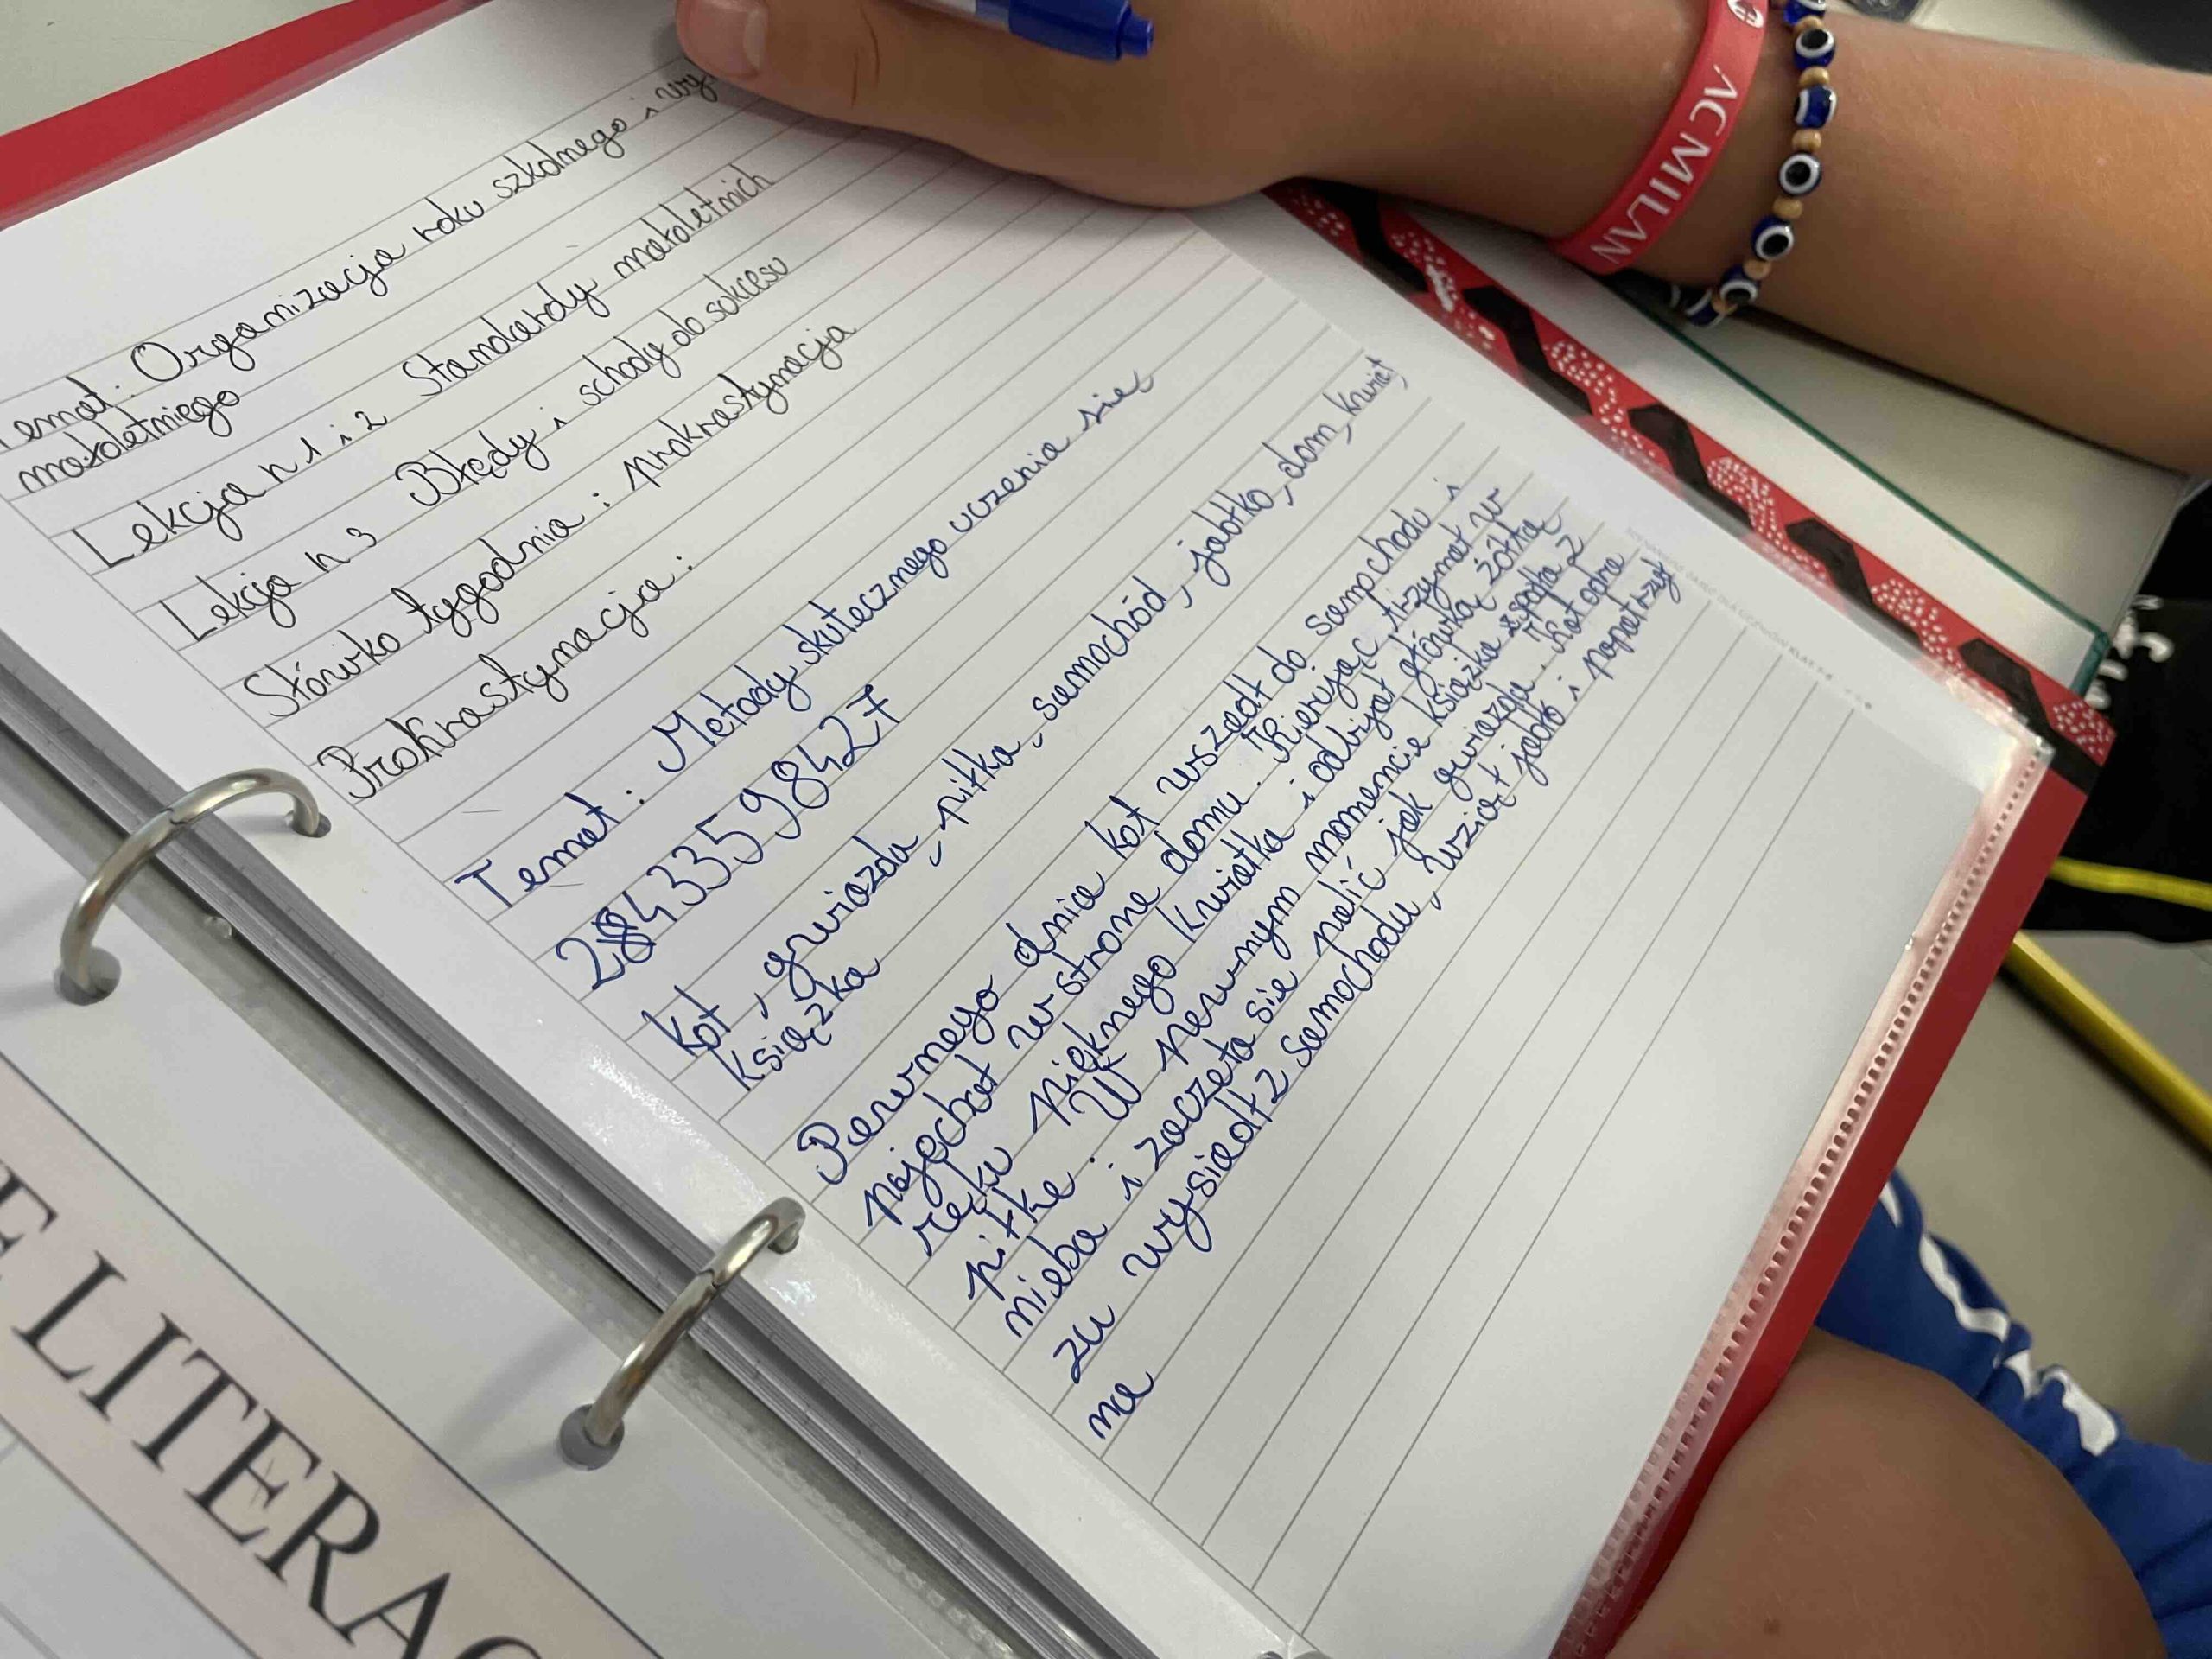 Temat: Organizacja roku szkolnego i wy
małoletniego
Lekcja n 1 i 2 Standardy małoletnich
Lekcja n 3 Błędy i schody do sukcesu
Słówko tygodnia: prokrastynacja
Prokrastynacja:
Temat: Metody skutecznego uczenia się
28433598427
kot, gwiazda, piłka, samochód, jabłko, dom, kwiat,
książka
Pewnego dnia kot wszedł do samochodu i
pojechał w stronę domu. Kierując trzymał w
ręku pięknego kwiatka i odbijał główką żółtą
piłkę. W pewnym momencie książka spadła z
nieba i zaczęła się palić jak gwiazda. Kot odra
zu wysiadł z samochodu, wziął jabłko i popatrzył
na
AC MILAN
E LITERAC